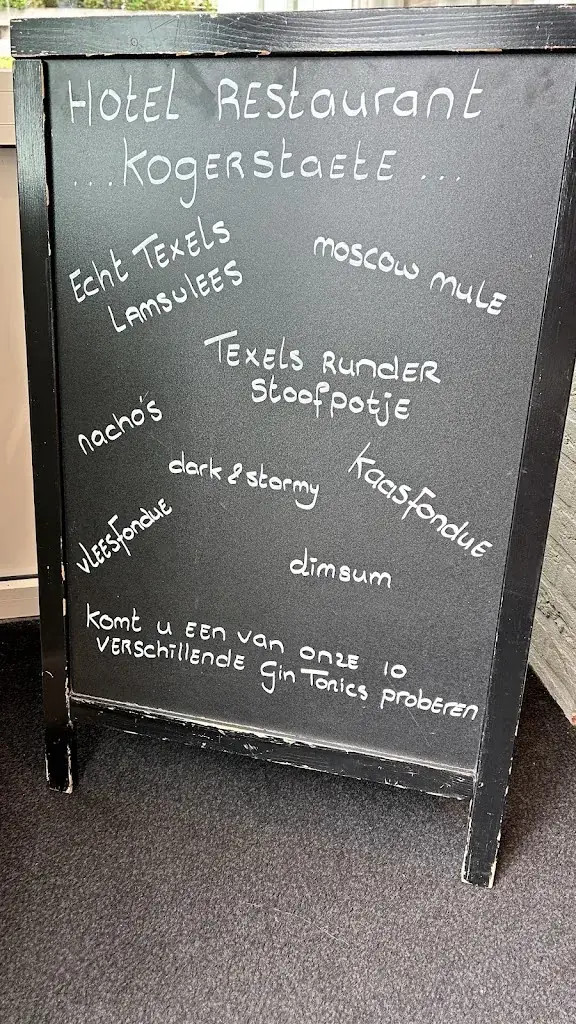 Hotel Restaurant
...Kogerstaete...
Echt Texels
Lamsvlees
moscow mule
Texels Runder
stoofpotje
nacho's
dark & stormy
kaasfondue
vleesfondue
dimsum
Komt u een van onze 10
verschillende Gin Tonics proberen